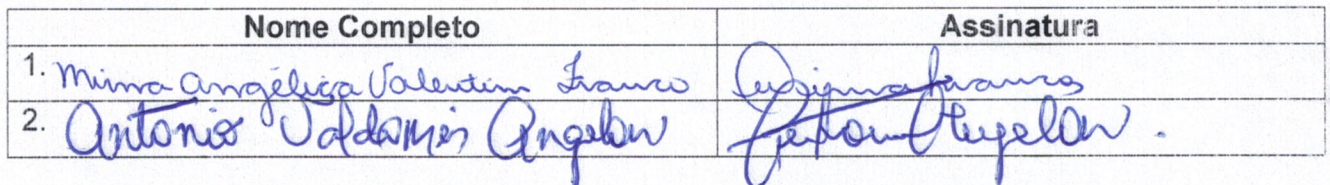 Nome Completo Assinatura
1. Mirna Angélica Valentim Franco
2. Antonio Valdomir Angelon